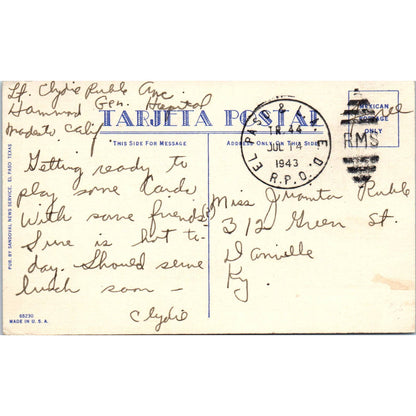 Lt. Clydie Ruble Anc
Hammond Gen. Hospital
Modesto Calif.
TARJETA POSTAL
THIS SIDE FOR MESSAGE
ADDRESS ONLY ON THIS SIDE
MEXICAN
POSTAGE
ONLY
Free
EL PASO & L.A. E.D.
TR. 44
JUL 14
1943
R.P.O.
RMS
Getting ready to
play some Cards
With some friends.
Sure is hot to-
day. Should serve
lunch soon -
Clydie
Miss Juanita Ruble
312 Green St.
Danville
Ky.
PUB. BY SANDOVAL NEWS SERVICE, EL PASO, TEXAS
68230
MADE IN U.S.A.